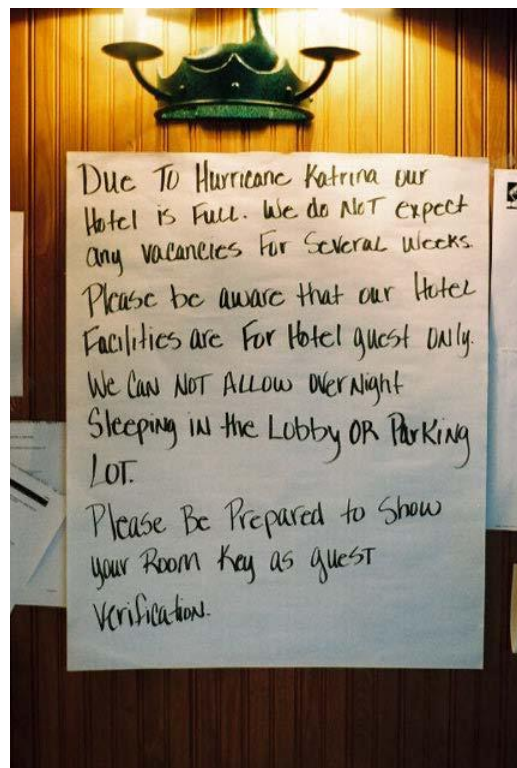 Due To Hurricane Katrina our
Hotel is Full. We do NOT expect
any vacancies For Several Weeks.
Please be aware that our Hotel
Facilities are For Hotel guest ONly.
We CaN NOT ALLOW OverNight
Sleeping iN the Lobby OR ParKing
LOT.
Please Be Prepared to Show
your Room Key as guest
Verification.